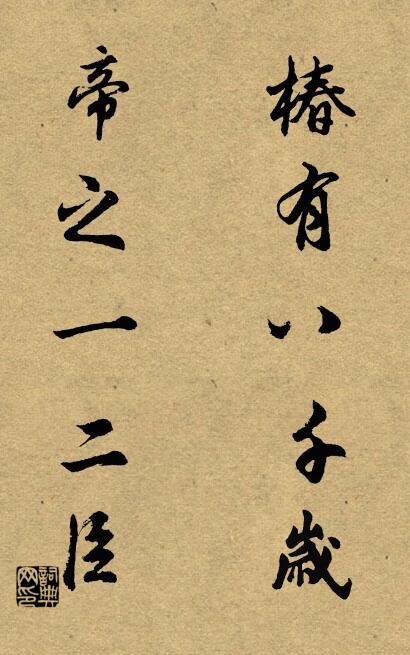 椿有八千歲
帝之一二臣
詞典網印